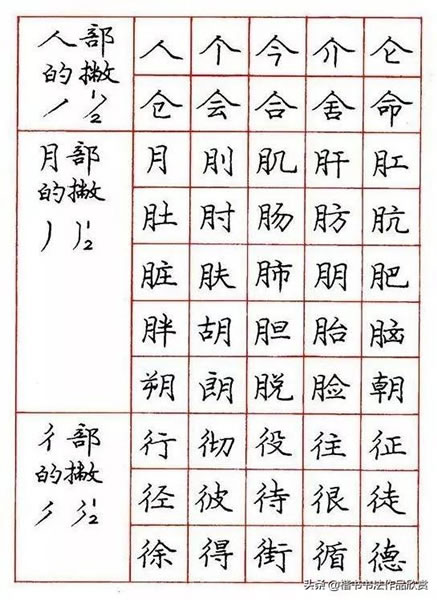 人部
的撇
丿 ½
人 个 今 介 仑
仓 会 合 舍 命
月部
的撇
丿 ½
月 刖 肌 肝 肛
肚 肘 肠 肪 肮
脏 肤 肺 朋 肥
胖 胡 胆 胎 脑
朔 朗 脱 脸 朝
彳部
的撇
½
行 彻 役 往 征
径 彼 待 很 徒
徐 得 街 循 德
头条@楷书书法作品欣赏